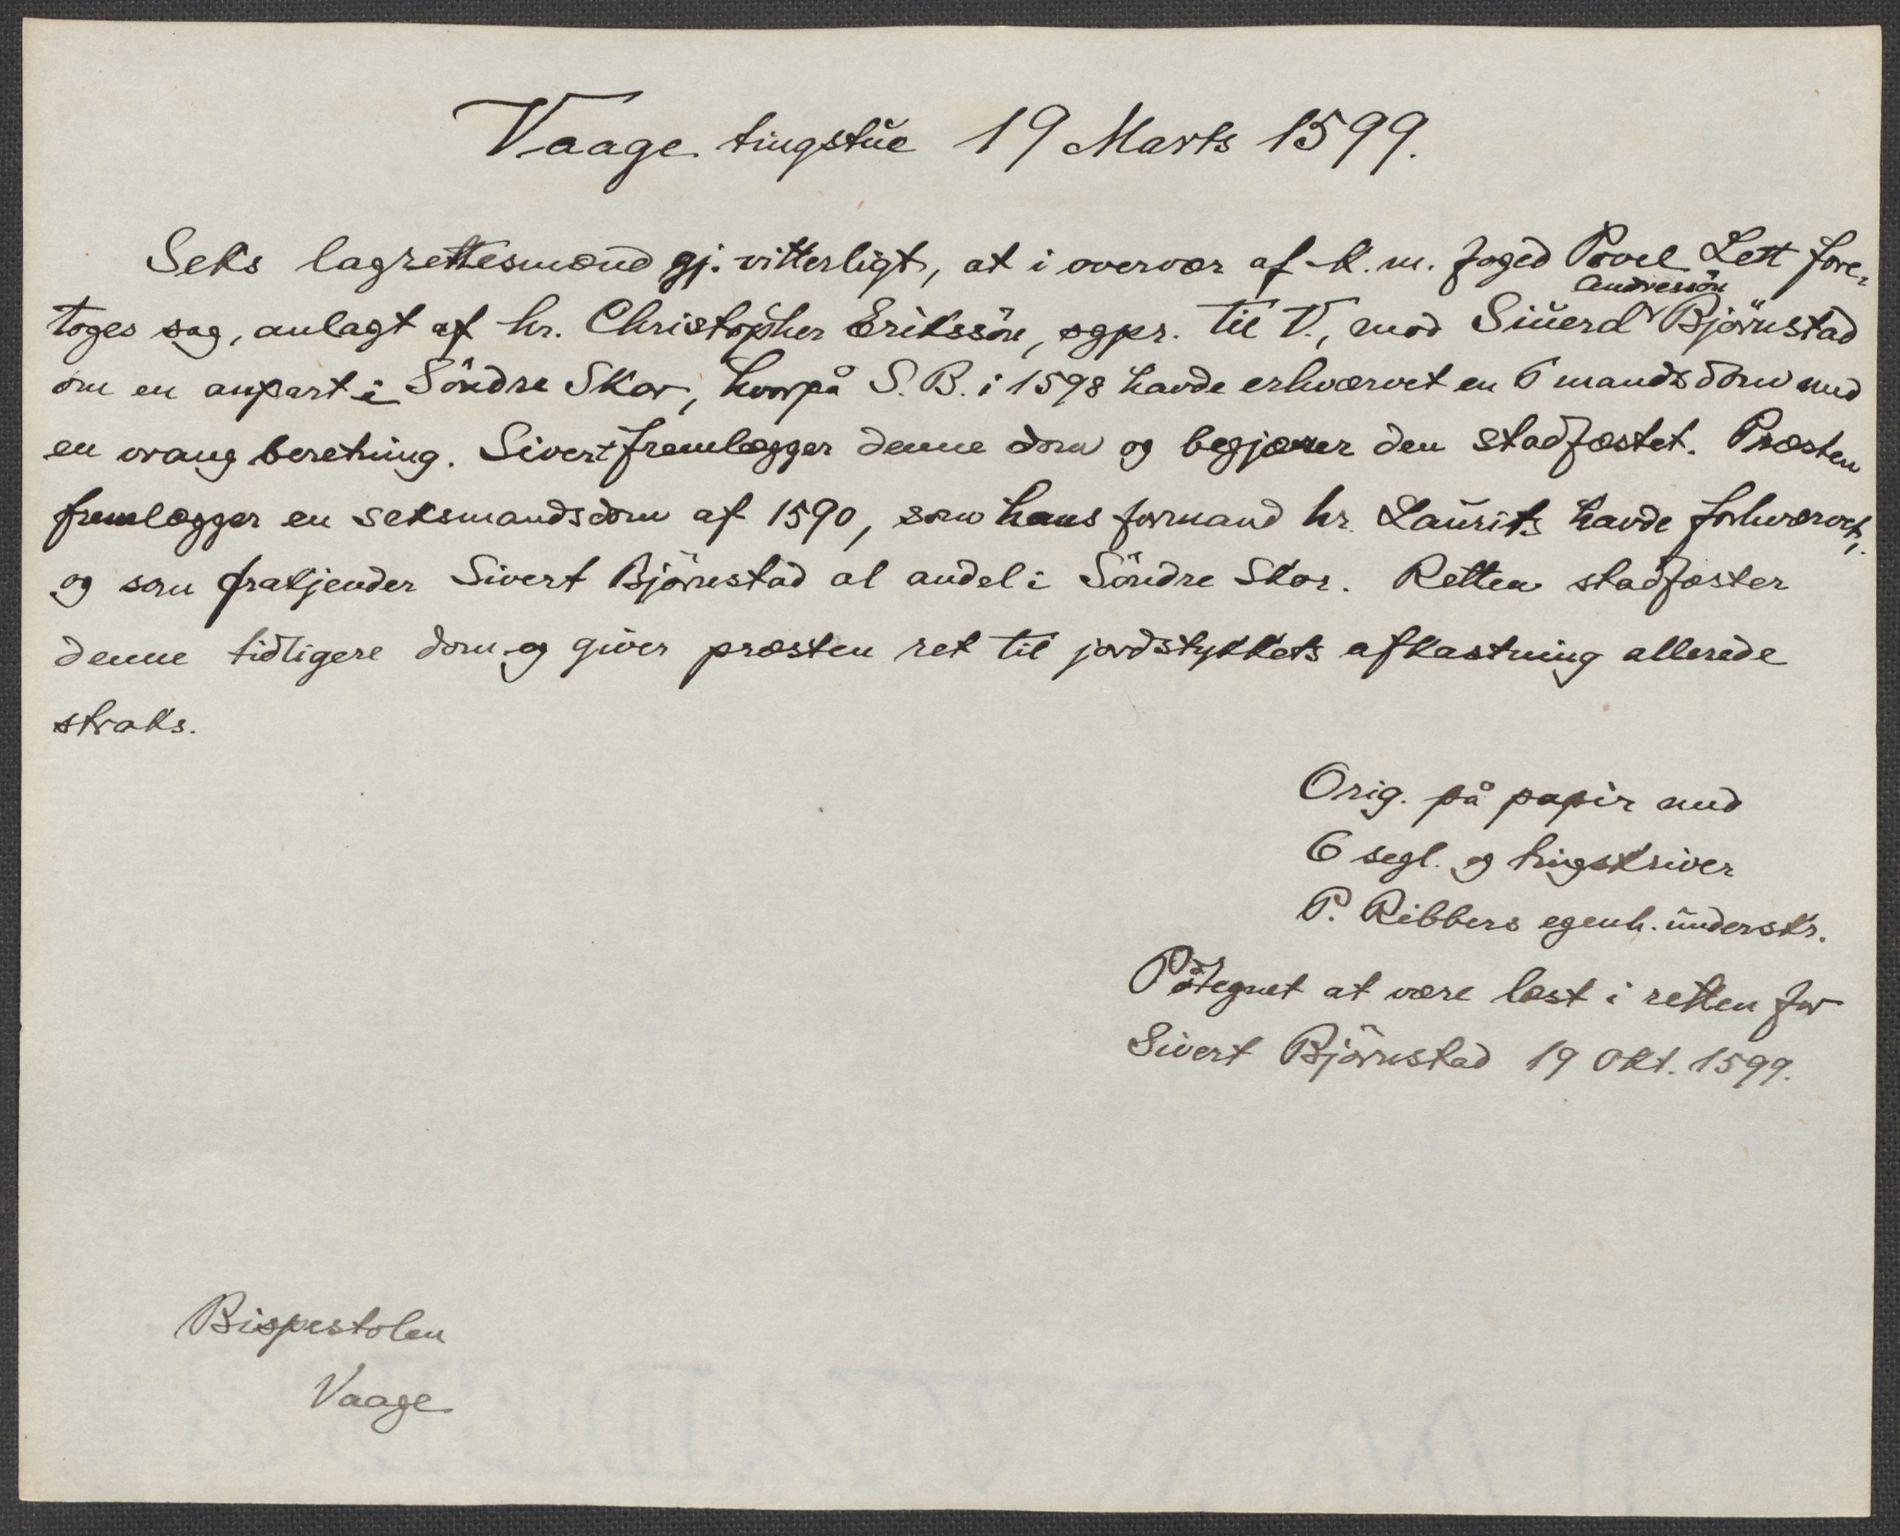 Vaage tingstue 19 Marts 1599.
Seks lagrettesmænd gj. vitterligt, at i overvær af k. m. foged Povel Lett fore-
toges sag, anlagt af hr. Christopher Erikssön, sgpr. til V., mod Siuerd Andressön Björnstad
om en anpart i Söndre Skar, hvorpå S. B. i 1598 havde erhvervet en 6 mands dom med
en vrang beretning. Sivert fremlægger denne dom og begjærer den stadfæstet. Præsten
fremlægger en seksmandsdom af 1590, som hans formand hr. Laurits havde forhvervet,
og som frakjender Sivert Björnstad al andel i Söndre Skar. Retten stadfæster
denne tidligere dom og giver præsten ret til jordstykkets afkastning allerede
straks.
Orig. på papir med
6 segl. og tingskriver
P. Ribbers egenh. underskr.
Påtegnet at være læst i retten for
Sivert Björnstad 19 Okt. 1599.
Bispestolen
Vaage